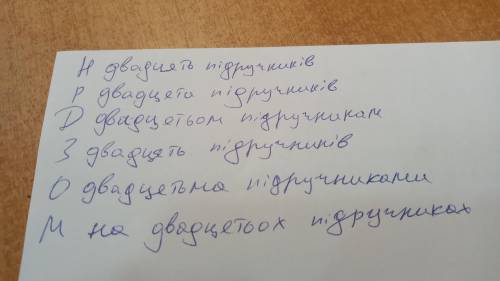 Н двадцять підручників
Р двадцети підручників
D двадцетьом підручникам
З двадцять підручників
О двадцетьма підручниками
М на двадцетьох підручниках